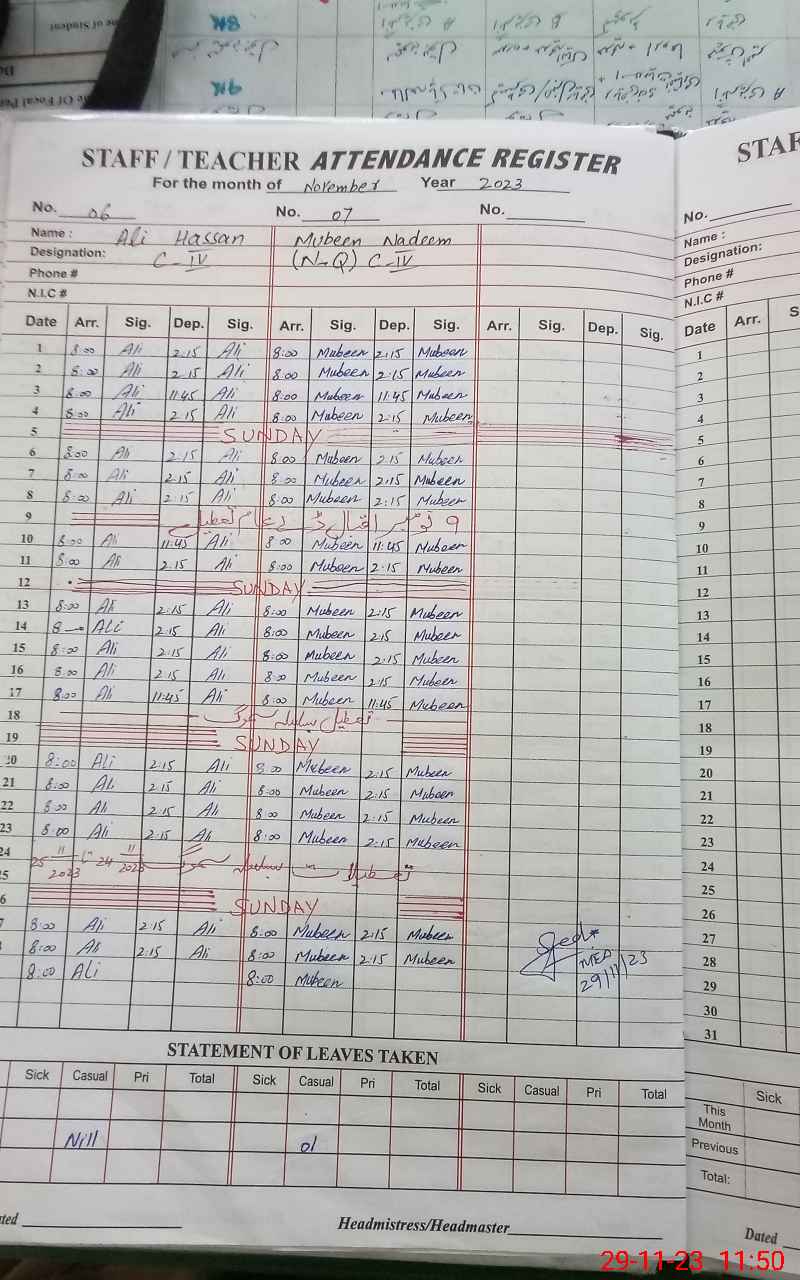 STAFF / TEACHER ATTENDANCE REGISTER
For the month of November Year 2023
No. 06 No. 07 No.
Name : Ali Hassan Mubeen Nadeem
Designation: C-IV (N-Q) C-IV
Phone #
N.I.C #
Date Arr. Sig. Dep. Sig. Arr. Sig. Dep. Sig. Arr. Sig. Dep. Sig.
1 8:00 Ali 2:15 Ali 8:00 Mubeen 2:15 Mubeen
2 8:00 Ali 2:15 Ali 8:00 Mubeen 2:15 Mubeen
3 8:00 Ali 11:45 Ali 8:00 Mubeen 11:45 Mubeen
4 8:00 Ali 2:15 Ali 8:00 Mubeen 2:15 Mubeen
5 SUNDAY
6 8:00 Ali 2:45 Ali 8:00 Mubeen 2:15 Mubeen
7 8:00 Ali 2:15 Ali 8:00 Mubeen 2:15 Mubeen
8 8:00 Ali 2:15 Ali 8:00 Mubeen 2:15 Mubeen
9 ۹ نومبر اقبال ڈے عام تعطیل
10 8:00 Ali 11:45 Ali 8:00 Mubeen 11:45 Mubeen
11 8:00 Ali 2:15 Ali 8:00 Mubeen 2:15 Mubeen
12 SUNDAY
13 8:00 Ali 2:15 Ali 8:00 Mubeen 2:15 Mubeen
14 8 Ali 2:15 Ali 8:00 Mubeen 2:15 Mubeen
15 8:00 Ali 2:15 Ali 8:00 Mubeen 2:15 Mubeen
16 8:00 Ali 2:15 Ali 8:00 Mubeen 2:15 Mubeen
17 8:00 Ali 11:45 Ali 8:00 Mubeen 11:45 Mubeen
18 تعطیل بسلسلہ سموگ
19 SUNDAY
20 8:00 Ali 2:15 Ali 8:00 Mubeen 2:15 Mubeen
21 8:00 Ali 2:15 Ali 8:00 Mubeen 2:15 Mubeen
22 8:00 Ali 2:15 Ali 8:00 Mubeen 2:15 Mubeen
23 8:00 Ali 2:15 Ali 8:00 Mubeen 2:15 Mubeen
24 25 11/2023 تا 24 11/2023 تعطیلات بسلسلہ سموگ
25
6 SUNDAY
7 8:00 Ali 2:15 Ali 8:00 Mubeen 2:15 Mubeen
8:00 Ali 2:15 Ali 8:00 Mubeen 2:15 Mubeen
MEA
29/11/23
8:00 Ali 8:00 Mubeen
STATEMENT OF LEAVES TAKEN
Sick Casual Pri Total Sick Casual Pri Total Sick Casual Pri Total
Nill 01
ated Headmistress/Headmaster
STAF
No.
Name :
Designation:
Phone #
N.I.C #
Date Arr. S
1
2
3
4
5
6
7
8
9
10
11
12
13
14
15
16
17
18
19
20
21
22
23
24
25
26
27
28
29
30
31
Sick
This Month
Previous
Total:
Dated
29-11-23 11:50